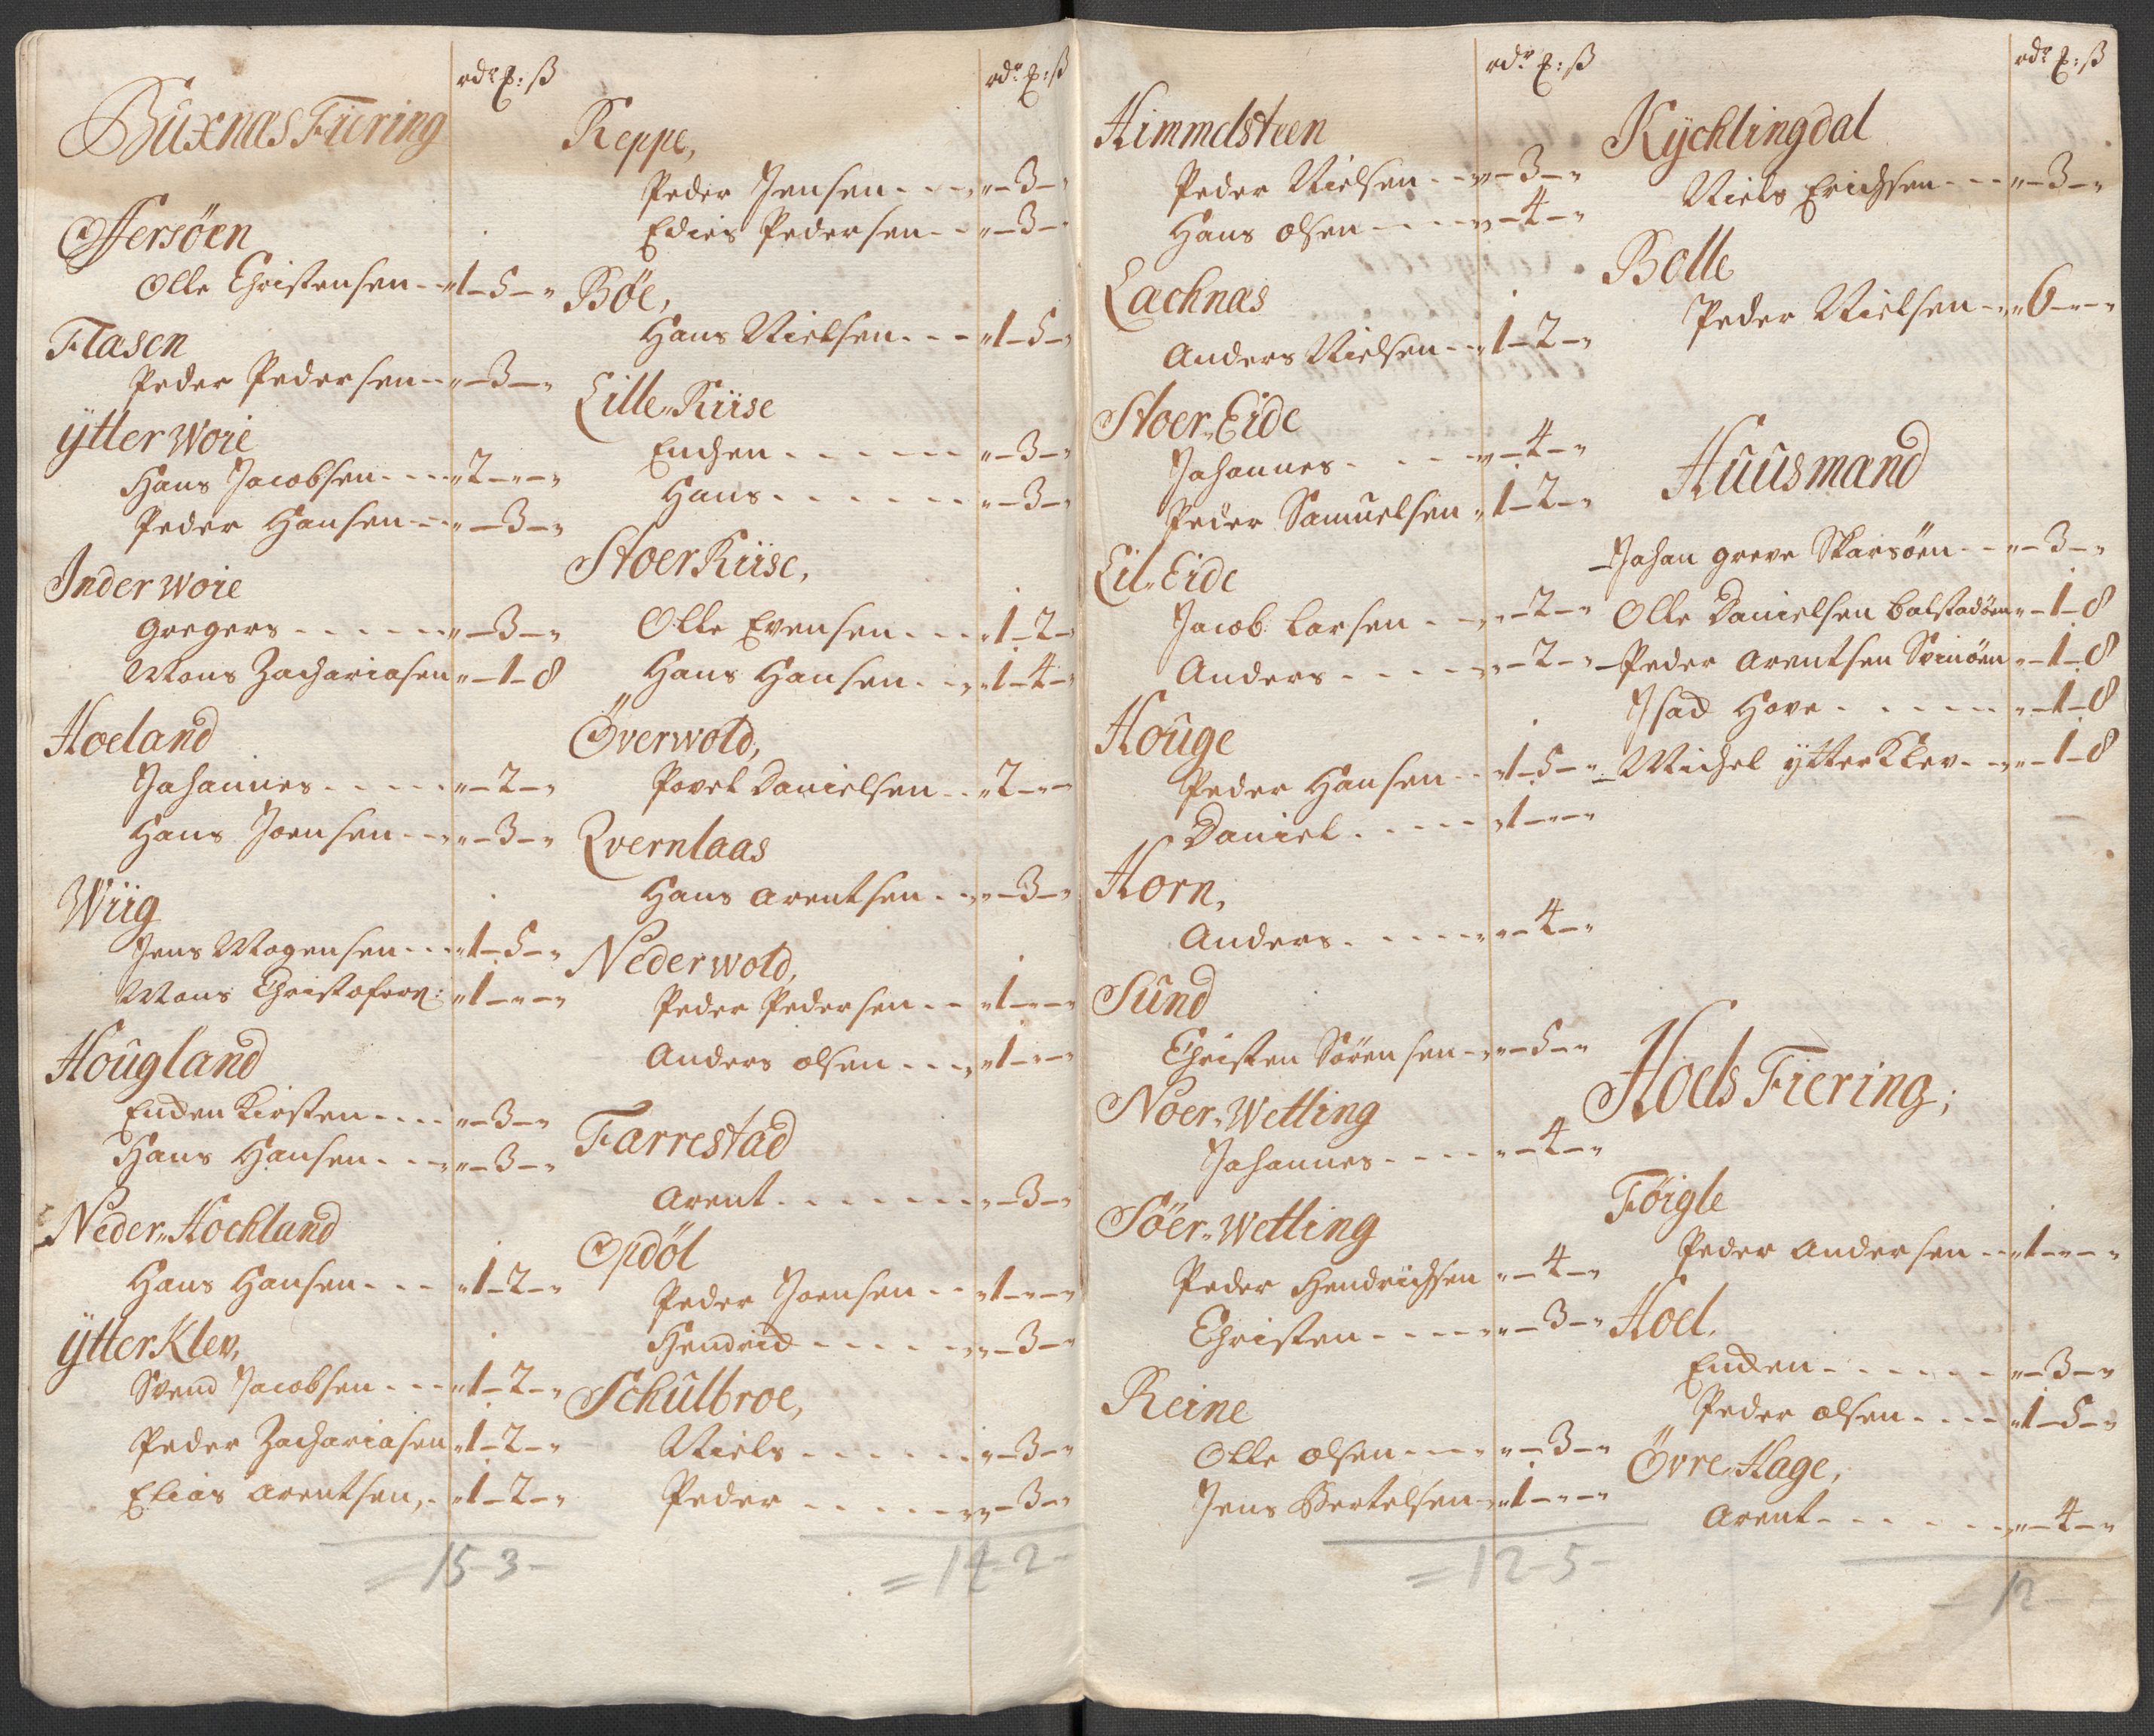 rdr ℔: ß
Buxnæs Fiering
Ffersöen
Olle Christensen - - „1 - 5 - „
Flasen
Peder Pedersen - - „ - 3 - „
ÿtter Woie
Hans Jacobsen - - - „2 - „ - „
Peder Hansen - - „ - 3 - „
Inder Woie
Gregers - - - - - „ - 3 - „
Mons Zachariasen „ - 1 - 8
Hoeland
Johannes - - - - - „ - 2 - „
Hans Joensen - - - „ - 3 - „
Wiig
Jens Mogensen - - - „1 - 5 - „
Mons Christofers: „1 - „ - „
Hougland
Encken Kirsten - - - - „ - 3 - „
Hans Hansen - - - „ - 3 - „
Neder Hochland
Hans Hansen - - - „1 - 2 - „
ÿtter Klev,
Svend Jacobsen - - - „1 - 2 - „
Peder Zachariasen „1 - 2 - „
Elias Arentsen, - „1 - 2 - „
= 15 - 3 -
rdr ℔: ß
Reppe,
Peder Jensen - - - „ - 3 - „
Edies Pedersen - - „ - 3 - „
Böe,
Hans Nielsen - - - „1 - 5 - „
Lille Riise
Enchen - - - - - - „ - 3 - „
Hans - - - - - - - „ - 3 - „
Stoer Riise,
Olle Evensen - - - „1 - 2 - „
Hans Hansen - - - „1 - 4 - „
Överwold,
Povel Danielsen - - „2 - „ - „
Qvernlaas
Hans Arentsen - - „ - 3 - „
Nederwold,
Peder Pedersen - - „1 - „ - „
Anders Olsen - - - „1 - „ - „
Farrestad
Arent - - - - - - - „ - 3 - „
Opdöl
Peder Joensen - - „1 - „ - „
Hendrick - - - - - „ - 3 - „
Schulbroe,
Niels - - - - - - „ - 3 - „
Peder - - - - - - „ - 3 - „
= 14 - 2 -
rdr ℔: ß
Himmelsteen
Peder Nielsen - - „ - 3 - „
Hans Olsen - - - „ - 4 - „
Lachnæs
Anders Nielsen - - „1 - 2 - „
Stoer Eide
Johannes - - - - „ - 4 - „
Peder Samuelsen „1 - 2 - „
Lil Eide
Jacob Larsen - - „ - 2 - „
Anders - - - - - „ - 2 - „
Houge
Peder Hansen - - „1 - 5 - „
Daniel - - - - - „1 - „ - „
Horn,
Anders - - - - - „ - 4 - „
Sund
Christen Sörensen - „ - 5 - „
Noer Wetting
Johannes - - - - „ - 4 - „
Söer Wetting
Peder Hendrichsen „ - 4 - „
Christen - - - - - „ - 3 - „
Reine
Olle Olsen - - - - „ - 3 - „
Jens Bertelsen - - „1 - „ - „
= 12 - 5 -
rdr ℔: ß
Kÿchlingdal
Niels Erichsen - - - „ - 3 - „
Bolle
Peder Nielsen - - „6 - „ - „
Huusmænd
Johan Greve Skarsöen - - „ - 3 - „
Olle Danielsen Balstadöen „ - 1 - 8
Peder Arentsen Svinöen „ - 1 - 8
Isach Hove - - - - - „ - 1 - 8
Michel ÿtterKlev - - „ - 1 - 8
Hoels Fiering;
Föigle
Peder Andersen - - „1 - „ - „
Hoel,
Encken - - - - - - „ - 3 - „
Peder Olsen - - - - „1 - 5 - „
Övre Hage,
Arent - - - - - - „ - 4 - „
- 12 -